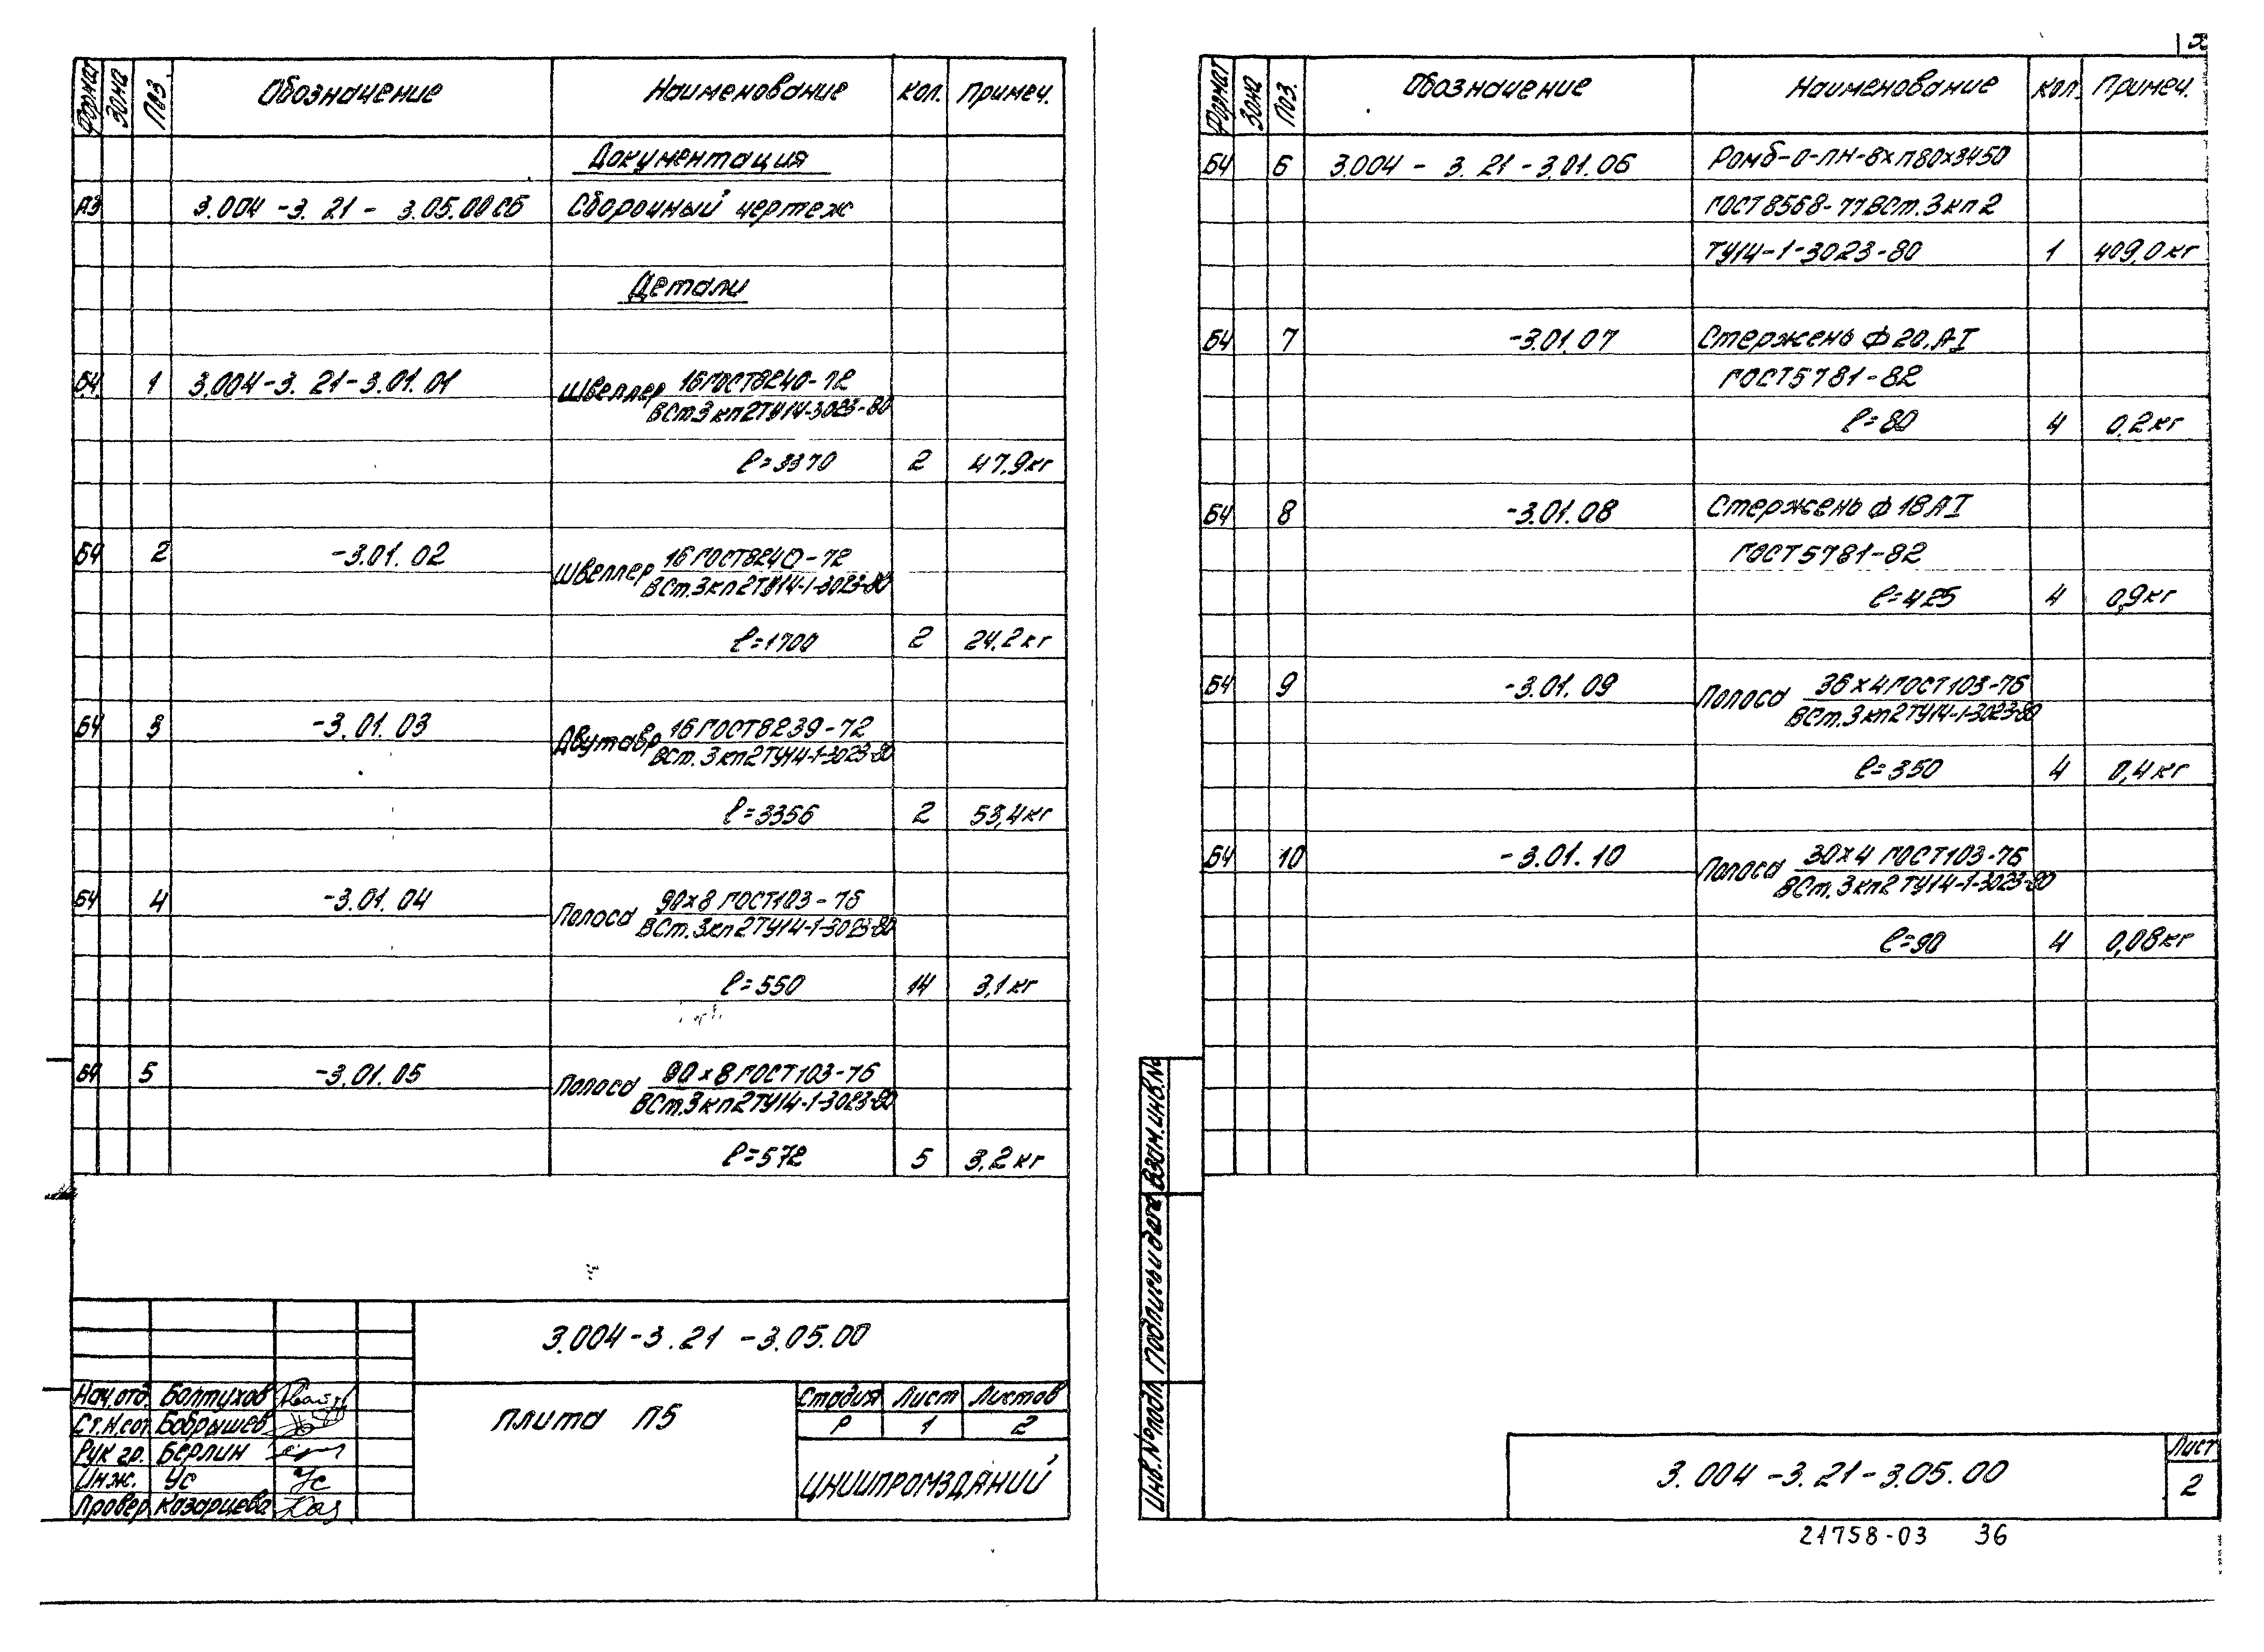 Формат Зона Поз. Обозначение Наименование Кол. Примеч.
Документация
А3 3.004-3.21-3.05.00СБ Сборочный чертеж
Детали
БЧ. 1 3.004-3.21-3.01.01 Швеллер 16 ГОСТ8240-72
ВСт.3кп2ТУ14-3023-80
ℓ=3370 2 47,9кг
БЧ 2 -3.01.02 Швеллер 16 ГОСТ8240-72
ВСт.3кп2ТУ14-1-3023-80
ℓ=1700 2 24,2кг
БЧ 3 -3.01.03 Двутавр 16 ГОСТ8239-72
ВСт.3кп2ТУ14-1-3023-80
ℓ=3356 2 53,4кг
БЧ 4 -3.01.04 Полоса 90х8 ГОСТ103-76
ВСт.3кп2ТУ14-1-3023-80
ℓ=550 14 3,1кг
БЧ 5 -3.01.05 Полоса 90х8 ГОСТ103-76
ВСт.3кп2ТУ14-1-3023-80
ℓ=572 5 3,2кг
3.004-3.21-3.05.00
Нач.отд. Болтухов
Ст.н.сот. Бобрышев
Рук гр. Берлин
Инж. Ус Ус
Провер. Казарцева Каз
Плита П5
Стадия Лист Листов
Р 1 2
ЦНИИПРОМЗДАНИЙ
Формат Зона Поз. Обозначение Наименование Кол. Примеч.
БЧ 6 3.004-3.21-3.01.06 Ромб-О-ПН-8хП80х3450
ГОСТ8568-77ВСт.3кп2
ТУ14-1-3023-80 1 409,0кг
БЧ 7 -3.01.07 Стержень Ф20.АI
ГОСТ5781-82
ℓ=80 4 0,2кг
БЧ 8 -3.01.08 Стержень Ф18АI
ГОСТ5781-82
ℓ=425 4 0,9кг
БЧ 9 -3.01.09 Полоса 36х4ГОСТ103-76
ВСт.3кп2ТУ14-1-3023-80
ℓ=350 4 0,4кг
БЧ 10 -3.01.10 Полоса 30х4 ГОСТ103-76
ВСт.3кп2ТУ14-1-3023-80
ℓ=90 4 0,08кг
Инв.№подл. Подпись и дата Взам.инв.№
3.004-3.21-3.05.00
Лист
2
21758-03 36